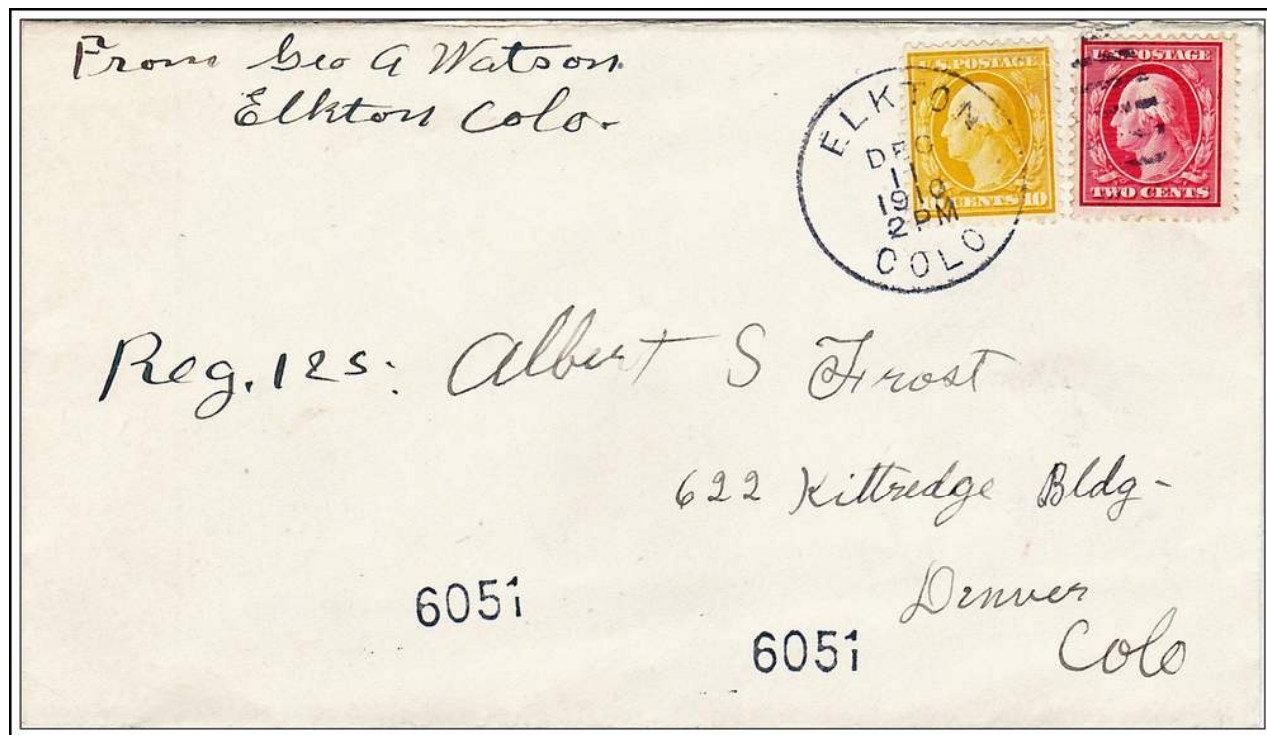 From Geo A Watson
Elkton Colo.
U.S. POSTAGE
CENTS 10
U.S. POSTAGE
TWO CENTS
ELKTON
DEC
11
1910
2PM
COLO
Reg. 125: Albert S Frost
622 Kittredge Bldg-
Denver
Colo
6051
6051